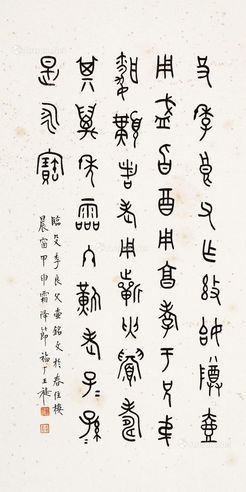 殳季良父乍姒尊壺
用盛旨酉用享孝于兄弟
婚媾者老用祈匄眉壽
其萬年霝冬難老子=孫=
是永寶
臨殳季良父壺銘文於春住樓
晨窗甲申霜降節福厂王禔